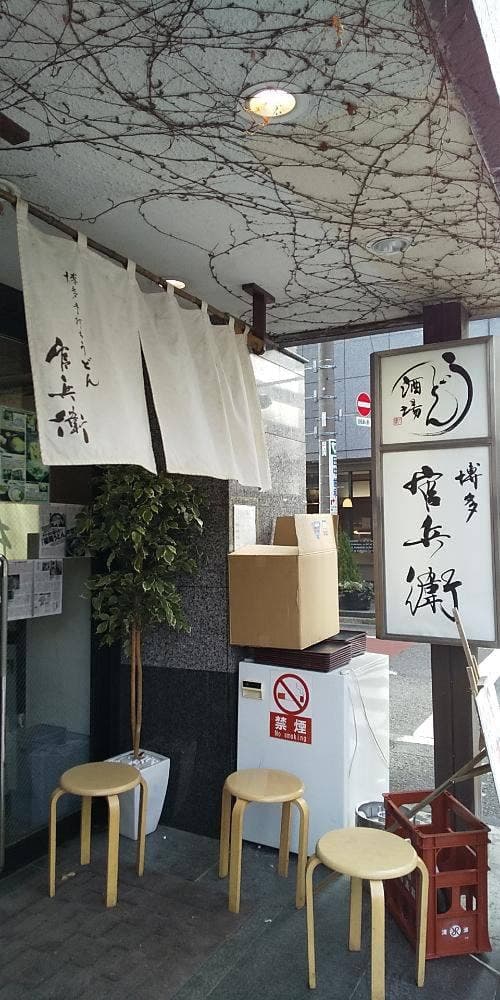 博多手打うどん
官兵衛
うどん
酒場
博多
官兵衛
禁煙
No smoking